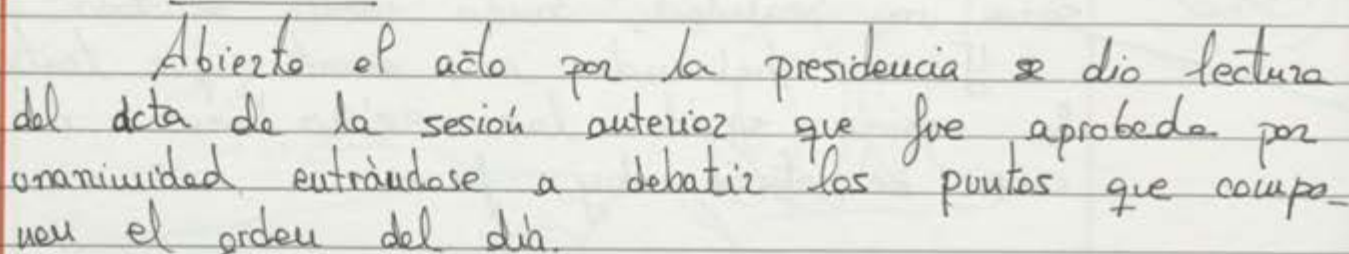 Abierto el acto por la presidencia se dio lectura
del acta de la sesión anterior que fue aprobada por
unanimidad entrándose a debatir los puntos que compo-
nen el orden del día.